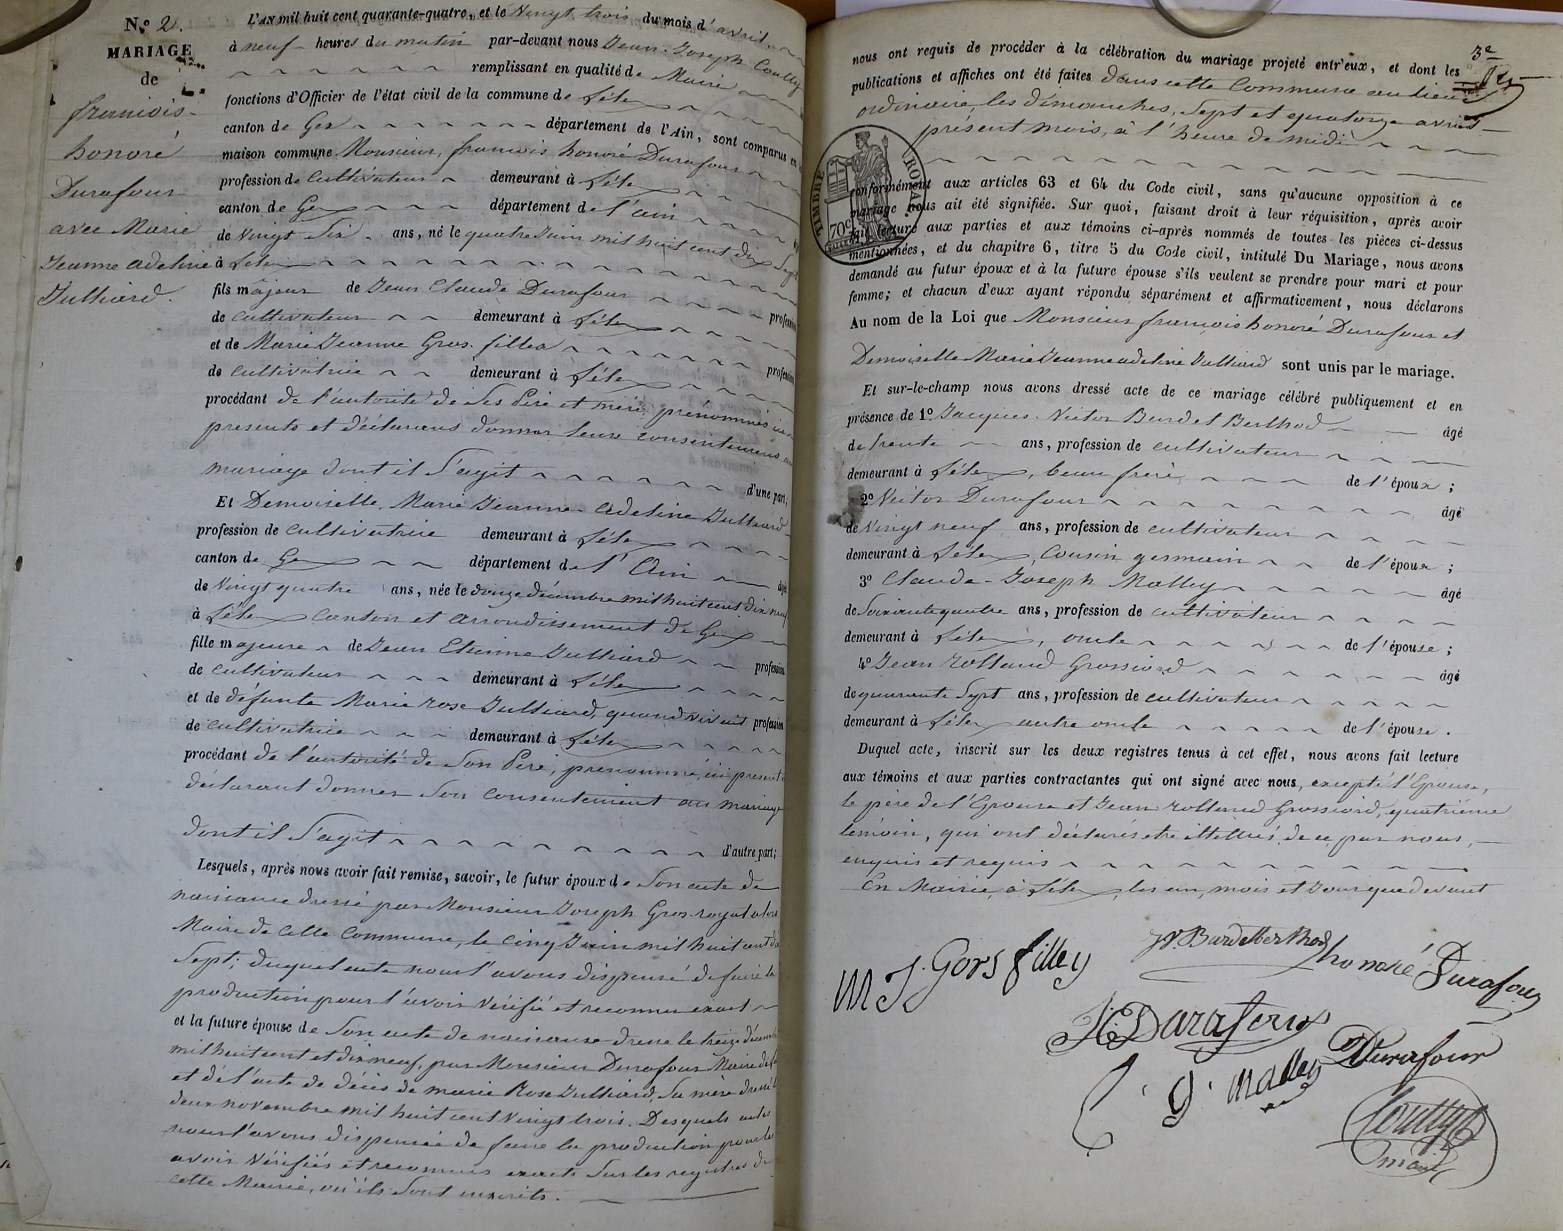 N.º 2.
MARIAGE
de
françois-
honoré
Durafour
avec Marie
Jeanne adeline
Julliard.
L'AN mil huit cent quarante-quatre, et le Vingt trois du mois d'avril
à neuf heures du matin par-devant nous Jean-Joseph Coutty
remplissant en qualité de Maire
fonctions d'Officier de l'état civil de la commune de Lélex
canton de Gex département de l'Ain, sont comparus en
maison commune Monsieur, françois honoré Durafour
profession de cultivateur demeurant à Lélex
canton de Gex département de l'ain
de Vingt Six ans, né le quatre Juin mil huit cent dix Sept
à Lélex
fils majeur de Jean Claude Durafour profession
de cultivateur demeurant à Lélex
et de Marie Jeanne Gros-fillex profession
de cultivatrice demeurant à Lélex
procédant de l'autorité de Ses Père et mère, prénommés ici
présents et déclarans donner leurs consentemens au
mariage dont il S'agit d'une part;
Et Demoiselle, Marie Jeanne-Adeline Julliard
profession de cultivatrice demeurant à Lélex
canton de Gex département de l'Ain âgée
de Vingt quatre ans, née le douze décembre mil huit cent dix neuf
à Lélex canton et arrondissement de Gex
fille majeure de Jean Etienne Julliard profession
de cultivateur demeurant à Lélex
et de défunte Marie rose Julliard, quand vivait profession
de cultivatrice demeurant à Lélex
procédant de l'autorité de Son Père, prénommé, ici présent
déclarant donner Son consentement au mariage
dont il S'agit d'autre part;
Lesquels, après nous avoir fait remise, savoir, le futur époux de Son acte de
naissance dressé par Monsieur Joseph Gros-royat alors
Maire de cette Commune, le cinq Juin mil huit cent dix
Sept; duquel acte nous l'avons dispensé de faire la
production pour l'avoir vérifié et reconnu exact
et la future épouse de Son acte de naissance dressé le treize décembre
mil huit cent et dix neuf, par Monsieur Durafour Maire de
et de l'acte de décès de marie Rose Julliard, Sa mère dressé le
deux novembre mil huit cent vingt trois. Desquels actes
nous l'avons dispensée de faire la production pour les
avoir vérifiés et reconnus exacts Sur les registres de
cette Mairie, où ils Sont inscrits.
3e
nous ont requis de procéder à la célébration du mariage projeté entr'eux, et dont les
publications et affiches ont été faites dans cette Commune au lieu
ordinaire, les dimanches, Sept et quatorze avril
présent mois, à l'heure de midi
TIMBRE ROYAL
70c
conformément aux articles 63 et 64 du Code civil, sans qu'aucune opposition à ce
mariage nous ait été signifiée. Sur quoi, faisant droit à leur réquisition, après avoir
fait lecture aux parties et aux témoins ci-après nommés de toutes les pièces ci-dessus
mentionnées, et du chapitre 6, titre 5 du Code civil, intitulé Du Mariage, nous avons
demandé au futur époux et à la future épouse s'ils veulent se prendre pour mari et pour
femme; et chacun d'eux ayant répondu séparément et affirmativement, nous déclarons
Au nom de la Loi que Monsieur françois honoré Durafour et
Demoiselle Marie Jeanne adeline Julliard sont unis par le mariage.
Et sur-le-champ nous avons dressé acte de ce mariage célébré publiquement et en
présence de 1º Jacques-Victor Burdet Berthod âgé
de trente ans, profession de cultivateur
demeurant à Lélex, beau frère de l'époux;
2º Victor Durafour âgé
de Vingt neuf ans, profession de cultivateur
demeurant à Lélex, Cousin germain de l'époux;
3º Claude-Joseph Malley âgé
de Soixante quatre ans, profession de cultivateur
demeurant à Lélex, oncle de l'épouse;
4º Jean rolland Grossiord âgé
de quarante Sept ans, profession de cultivateur
demeurant à Lélex autre oncle de l'épouse.
Duquel acte, inscrit sur les deux registres tenus à cet effet, nous avons fait lecture
aux témoins et aux parties contractantes qui ont signé avec nous, excepté l'Epouse,
le père de l'Epouse et Jean rolland Grossiord, quatrième
témoin, qui ont déclarés etre illettrés, de ce par nous,
enquis et requis
En Mairie, à Lélex, les an, mois et Jour que devant
M J Gors filley
JV Burdet Berthod
honoré Durafour
JC Durafour
C J Malley
V Durafour
Coutty
maire